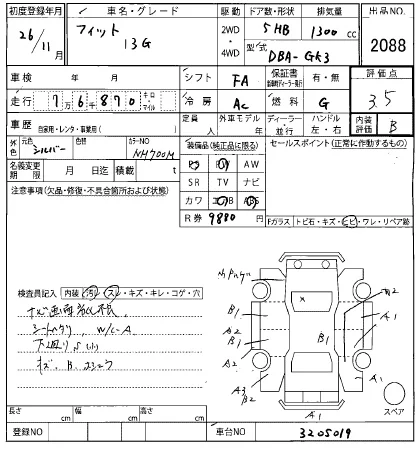 初度登録年月 車名・グレード 駆動 ドア数・形状 排気量 出品NO.
26/11月 フィット 13G 2WD・4WD 5HB 1300cc 2088
型式 DBA-GK3
車検 年 月 シフト FA 保証書 有・無 評価点 3.5
走行 7万6千870 キロ・マイル 冷房 AC 燃料 G
車歴 自家用・レンタ・事業用( ) 定員 人 外車モデル 年 ディーラー・並行 ハンドル 左・右 内装評価 B
外色 元色 シルバー 色替 カラーNO NH700M 装備品(純正品に限る) セールスポイント(正常に作動するもの)
名義変更期限 月 日迄 積載量 t PS PW AW
注意事項(欠品・修復・不具合箇所および状態) SR TV ナビ
カワ エアB ABS
R券 9880円 Fガラス トビ石・キズ・ヒビ・ワレ・リペア跡
検査員記入 内装(汚レ・スレ・キズ・キレ・コゲ・穴)
B1
A2
B1
A2
A3
B2
B1
A2
A1
A1
A1
スペア
長さ cm 幅 cm 高さ cm
登録NO 車台NO 3205019